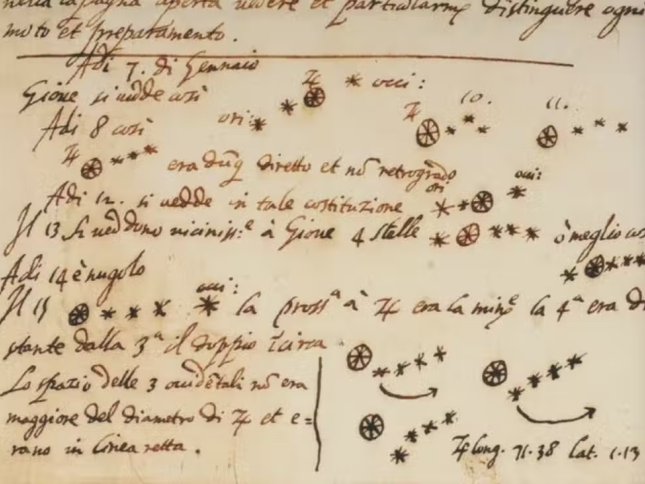 nella capagna aperta vedere et particularmẽ distinguere ogni
moto et preparamento.
Adi 7. di Gennaio
Gione si vedde così ♃ occi:
ori: 10. 11.
Adi 8 così ♃
♃ era dũq diretto et nõ retrogrado
Adi 12. si vedde in tale costituzione ori occi:
Il 13 si veddono vicinissᵉ à Gione 4 stelle ò meglio cosi
Adi 14 è nugolo
Il 15 occi: la prossᵃ à ♃ era la minᵉ la 4ᵃ era di
stante dalla 3ᵃ il doppio ĩcirca
Lo spazio delle 3 occidẽtali nõ era
maggiore del diametro di ♃ et e=
rano in linea retta.
♃ long. 71.38 lat. 1.13